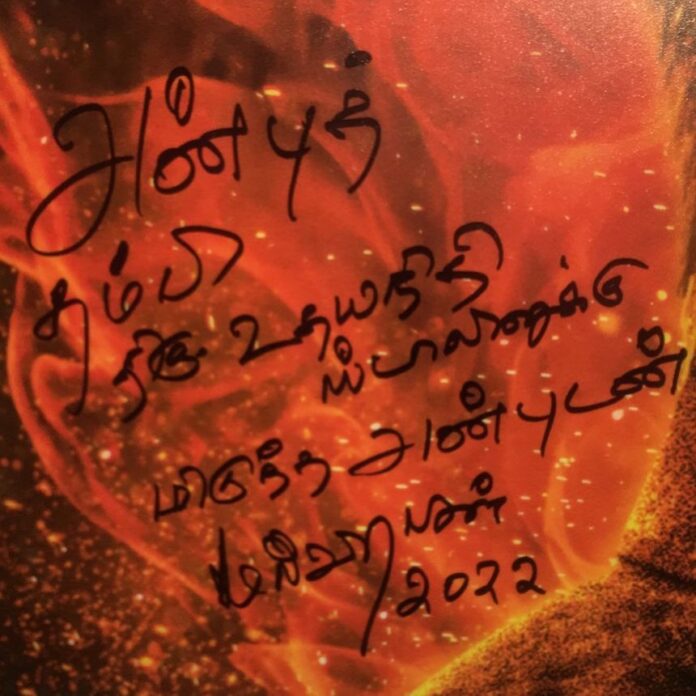 அன்புத்
தம்பி
திரு. உதயநிதி
ஸ்டாலினுக்கு
மிகுந்த அன்புடன்
2022